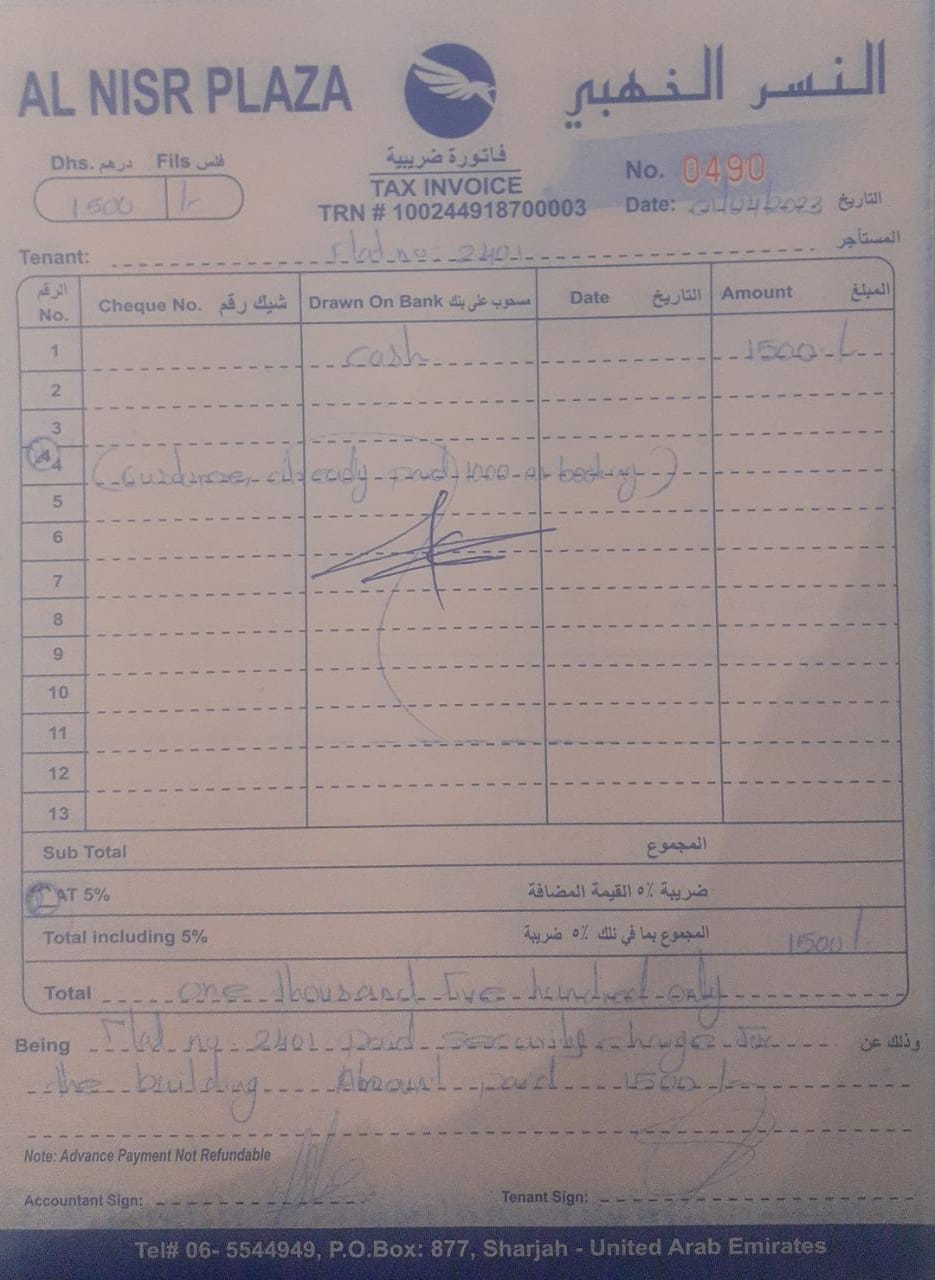 AL NISR PLAZA
النسر الذهبي
Dhs. درهم Fils فلس
1500 /-
فاتورة ضريبية
TAX INVOICE
TRN # 100244918700003
No. 0490
Date: 2023 التاريخ
Tenant: Flat no. 2401 المستأجر
الرقم No. Cheque No. شيك رقم Drawn On Bank مسحوب على بنك Date التاريخ Amount المبلغ
1 cash 1500/-
2
3
4 already paid 1000 at booking)
5
6
7
8
9
10
11
12
13
Sub Total المجموع
AT 5% ضريبة ٥٪ القيمة المضافة
Total including 5% المجموع بما في ذلك ٥٪ ضريبة 1500/-
Total one thousand Five hundred only
Being Flat no. 2401 paid security charge for وذلك عن
the building paid 1500/-
Note: Advance Payment Not Refundable
Accountant Sign: Tenant Sign:
Tel# 06- 5544949, P.O.Box: 877, Sharjah - United Arab Emirates